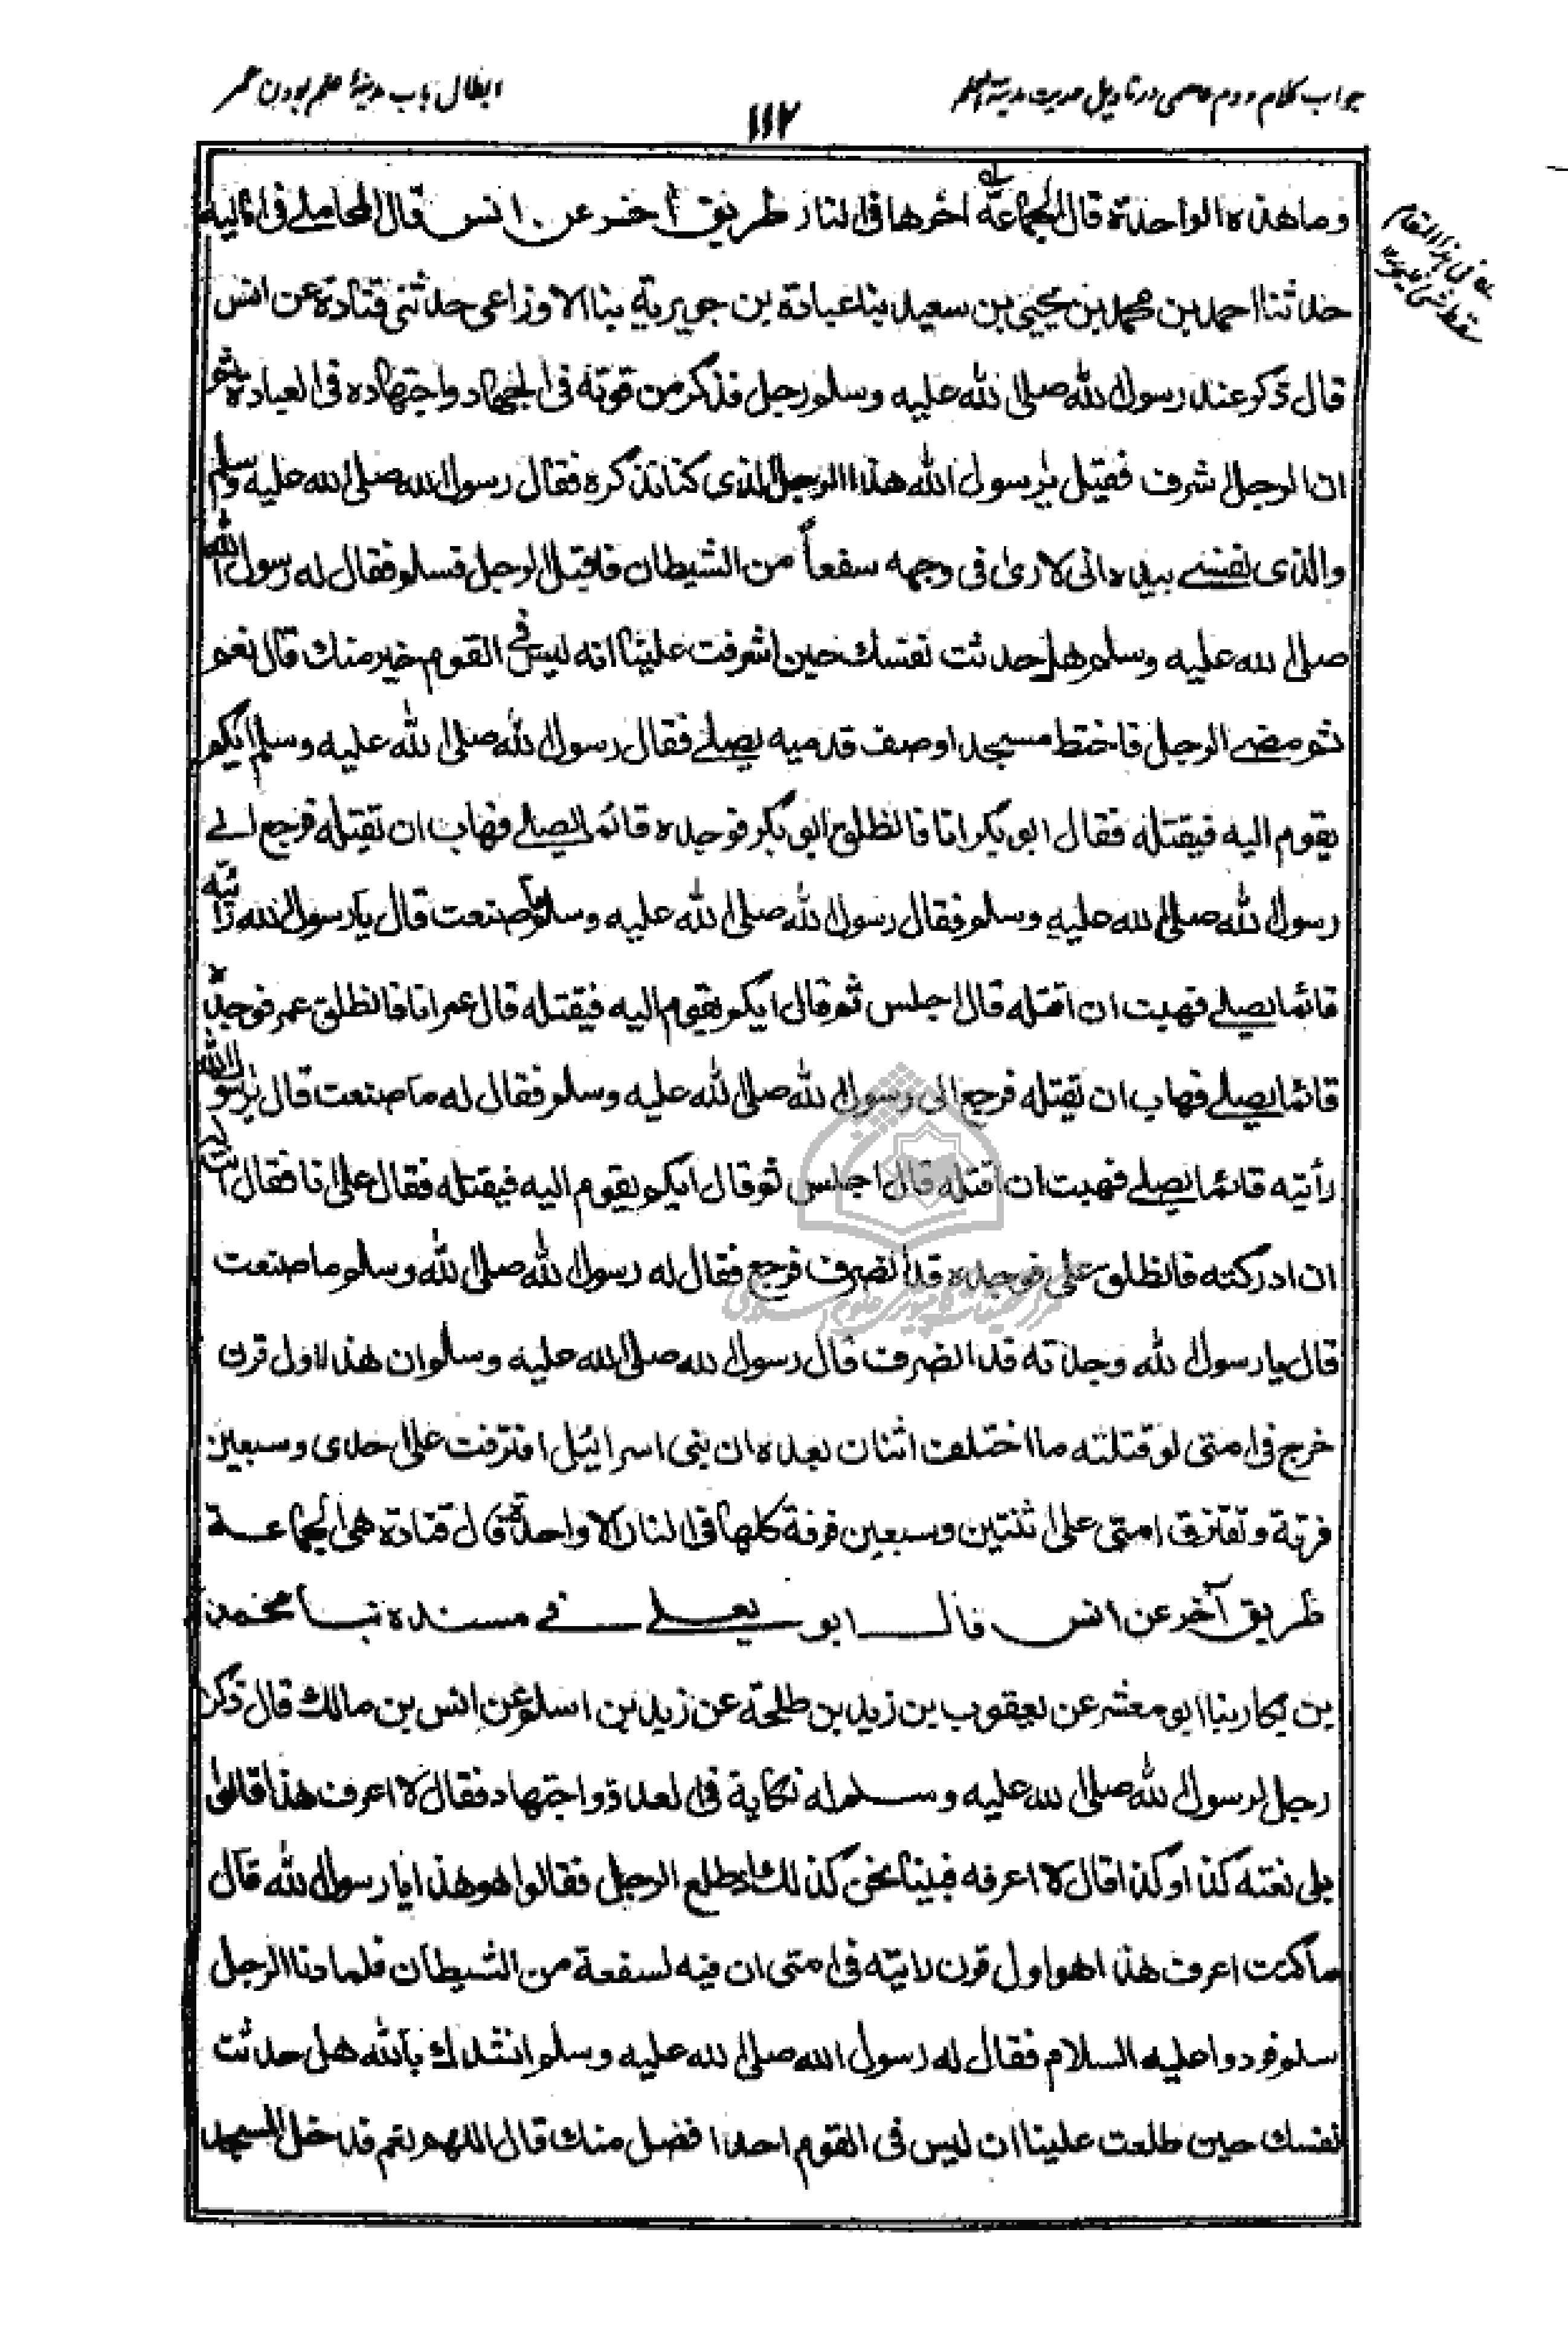 جواب کلام دوم عاصمی در تاویل حدیث مدینة العلم
۱۱۲
ابطال باب مدینهٔ علم بودن عمر
وما هذه الواحدة قال الجماعة اخرها فى النار طريق أخر عن انس قال المحاملے فى اماليه
فى هذا المقام
سقط شئ
حدثنا احمد بن محمد بن يحيى بن سعيد بنا عبادة بن جويرية بنا الاوزاعى حدثنى قتادة عن انس
قال ذكر عند رسول الله صلى الله عليه وسلم رجل فذكر من قوته فى الجهاد واجتهاده فى العبادة ثم
ان الرجل اشرف فقيل يٰرسول الله هذا الرجل الذى كنا نذكره فقال رسول الله صلى الله عليه وسلم
والذى نفسے بيده انى لارىٰ فى وجهه سفعاً من الشيطان فاقبل الرجل فسلم فقال له رسول الله
صلى الله عليه وسلم هل حدثت نفسك حين اشرفت علينا انه ليس فى القوم خير منك قال نعم
ثم مضے الرجل فاختط مسجدا وصف قدميه يصلے فقال رسول الله صلى الله عليه وسلم ايكم
يقوم اليه فيقتله فقال ابو بكر انا فانطلق ابو بكر فوجده قائما يصلے فهاب ان يقتله فرجع الے
رسول الله صلى الله عليه وسلم فقال رسول الله صلى الله عليه وسلم ما صنعت قال يا رسول الله رأيته
قائما يصلے فهبت ان اقتله قال اجلس ثم قال ايكم يقوم اليه فيقتله قال عمر انا فانطلق عمر فوجده
قائما يصلے فهاب ان يقتله فرجع الى رسول الله صلى الله عليه وسلم فقال له ما صنعت قال يٰرسول الله
رأيته قائما يصلے فهبت ان اقتله قال اجلس ثم قال ايكم يقوم اليه فيقتله فقال على انا فقال
ان ادركته فانطلق على فوجده قد انصرف فرجع فقال له رسول الله صلى الله وسلم ما صنعت
قال يا رسول الله وجدته قد انصرف قال رسول الله صلى الله عليه وسلم ان هذا لاول قرن
خرج فى امتى لو قتلته ما اختلف اثنان بعده ان بنى اسرائيل افترقت على احدى وسبعين
فرقة وتفترق امتى على ثنتين وسبعين فرقة كلها فى النار الا واحدة قال قتادة هى الجماعة
طريق آخر عن انس قال ابو يعلے فے مسنده بنا محمد
بن بكار بنا ابو معشر عن يعقوب بن زيد بن طلحة عن زيد بن اسلم عن انس بن مالك قال ذكر
رجل لرسول الله صلى الله عليه وسلم له نكاية فى العدو واجتهاد فقال لا اعرف هذا قالوا
بلى نعته كذا وكذا قال لا اعرفه فبينا نحن كذلك اذ طلع الرجل فقالوا هو هذا يا رسول الله قال
ما كنت اعرف هذا هو اول قرن رايته فى امتى ان فيه لسفعة من الشيطان فلما دنا الرجل
سلم فردوا عليه السلام فقال له رسول الله صلى الله عليه وسلم انشدك بالله هل حدثت
نفسك حين طلعت علينا ان ليس فى القوم احدا افضل منك قال اللهم نعم فدخل المسجد